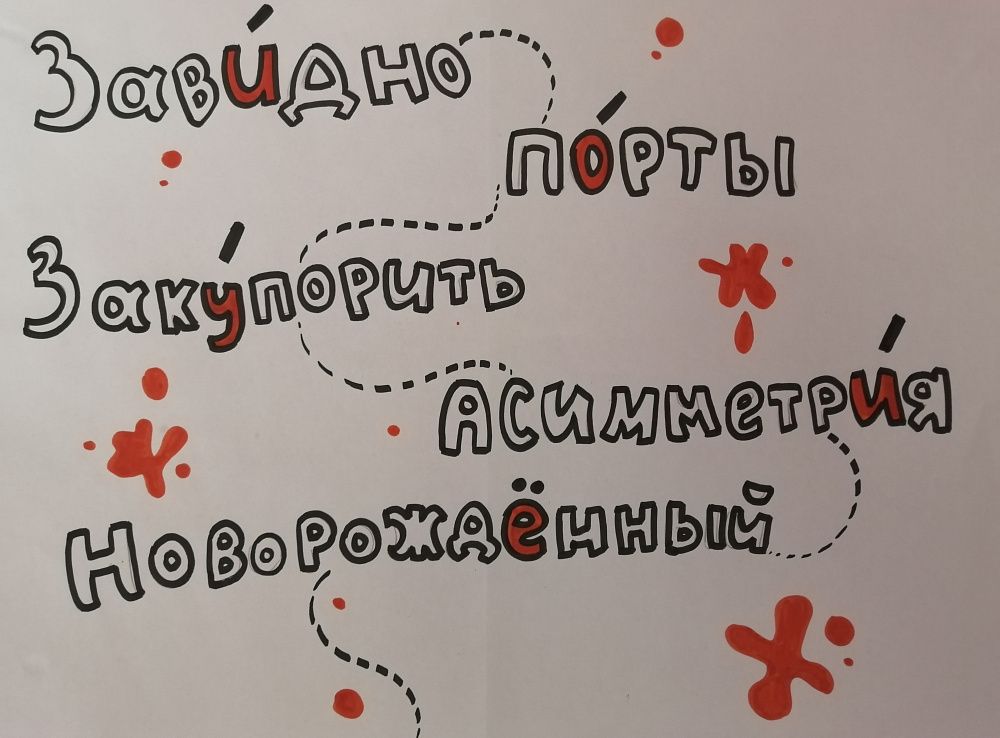 Зави́дно
по́рты
Заку́порить
Асимметри́я
Новорождённый